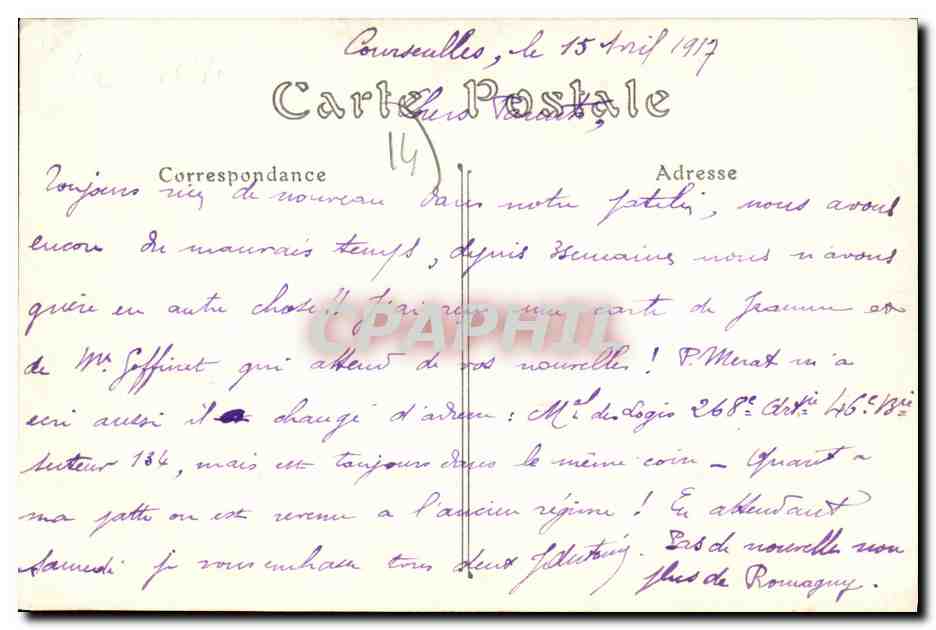 Courseulles, le 15 Avril 1917
Carte Postale
Chers Parents,
14
Correspondance
Adresse
Toujours rien de nouveau dans notre patelin, nous avons
encore du mauvais temps, depuis 3 semaines nous n'avons
guère eu autre chose!! J'ai reçu une carte de Jeanne et
de Mr Geffinet qui attend de vos nouvelles! P. Merat m'a
écrit aussi il a changé d'adresse : Mal des Logis 268e Artie 46e Bie
secteur 134, mais est toujours dans le même coin - Quant à
ma patte on est revenu à l'ancien régime! En attendant
samedi je vous embrasse tous deux
Pas de nouvelles non
plus de Romagny.
CPAPHIL